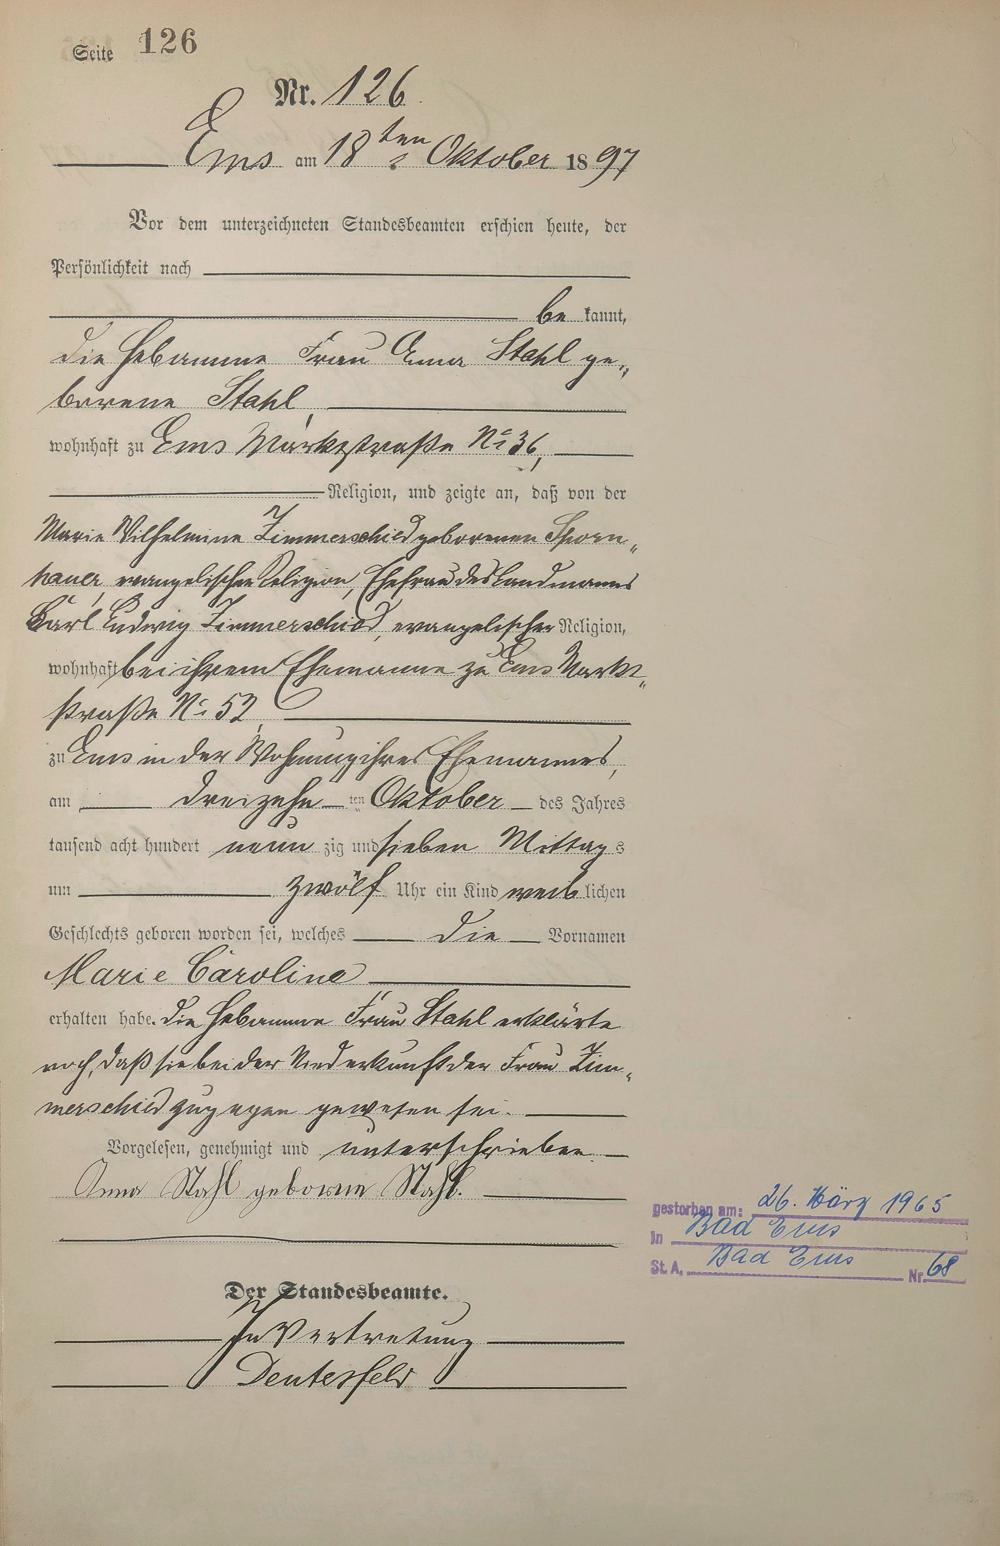 Seite 126
Nr. 126
Ems am 18ten Oktober 1897
Vor dem unterzeichneten Standesbeamten erschien heute, der
Persönlichkeit nach
be kannt,
die Hebamme Frau Anna Stahl ge„
borene Stahl,
wohnhaft zu Ems Marktstraße No 36,
Religion, und zeigte an, daß von der
Marie Wilhelmine Zimmerschied geborenen Sporn„
hauer, evangelischer Religion, Ehefrau des Landmannes
Karl Ludwig Zimmerschied, evangelischer Religion,
wohnhaft bei ihrem Ehemanne zu Ems Markt„
straße No 52,
zu Ems in der Wohnung ihres Ehemannes,
am dreizehn ten Oktober des Jahres
tausend acht hundert neun zig und sieben Mittags
um zwölf Uhr ein Kind weib lichen
Geschlechts geboren worden sei, welches die Vornamen
Marie Caroline
erhalten habe. Die Hebamme Frau Stahl erklärte
noch, daß sie bei der Niederkunft der Frau Zim„
merschied zugegen gewesen sei.
Vorgelesen, genehmigt und unterschrieben
Anna Stahl geborne Stahl.
gestorben am: 26. März 1965
in Bad Ems
St. A. Bad Ems Nr. 68
Der Standesbeamte.
In Vertretung
Deutesfeld